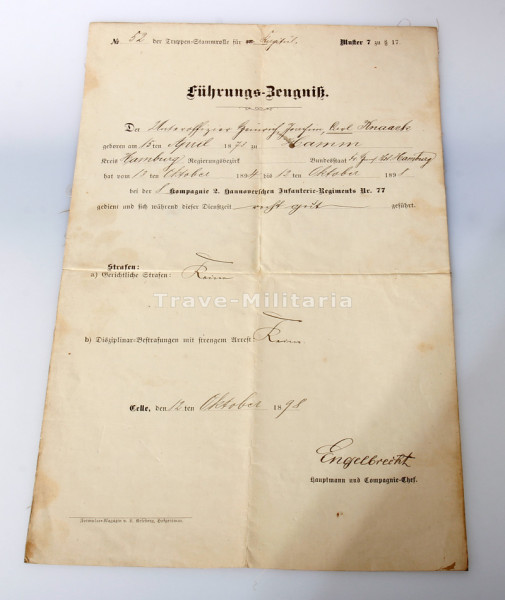 № 52 der Truppen-Stammrolle für Muster 7 zu § 17.
Führungs-Zeugniß.
Der Unteroffizier Heinrich, Joachim, Carl Knaack
geboren am 15ten April 1871 zu Hamm
Kreis Hamburg Regierungsbezirk Bundesstaat Hamburg
hat vom Oktober 1894 bis 12 ten Oktober 189
bei der Kompagnie 2. Hannoverschen Infanterie-Regiments Nr. 77
gedient und sich während dieser Dienstzeit recht gut geführt.
Strafen:
a) Gerichtliche Strafen: Keine
Trave-Militaria
b) Disziplinar-Bestrafungen mit strengem Arrest: Keine
Celle, den 12 ten Oktober 1898
Engelbrecht
Hauptmann und Compagnie-Chef.